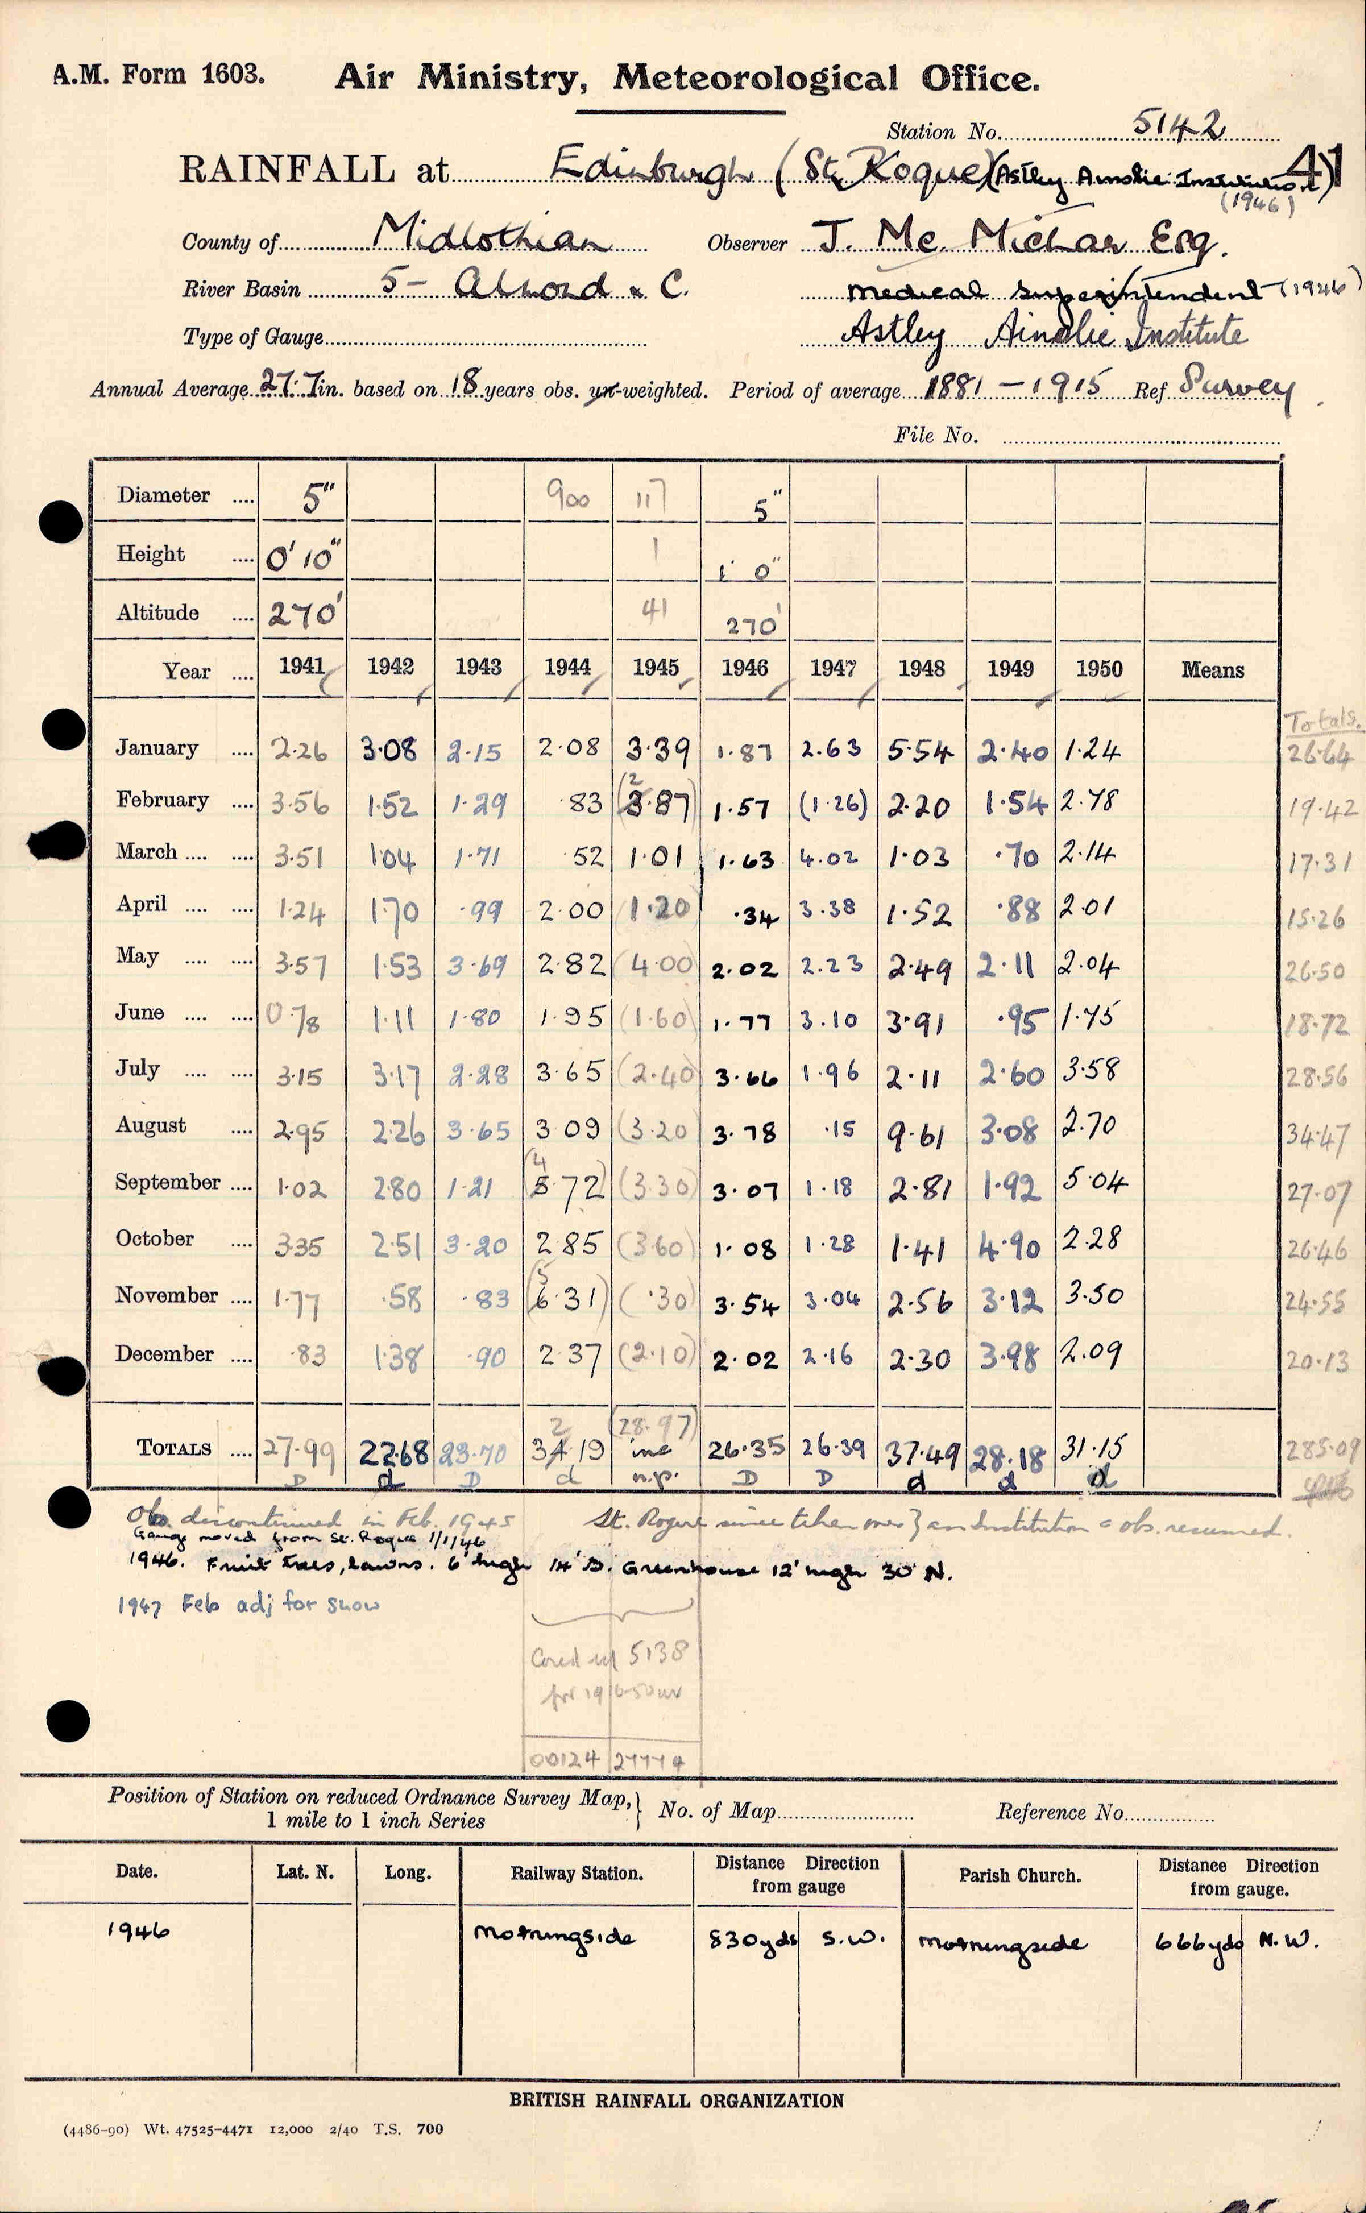 A.M. Form 1603. Air Ministry, Meteorological Office.
Station No. 5142
RAINFALL at Edinburgh (St. Roque) (Astley Ainslie Institution) 41
(1946)
County of Midlothian Observer J. Mc. Michar Esq.
River Basin 5 - Almond & C. Medical Superintendent (1946)
Type of Gauge Astley Ainslie Institute
Annual Average 27.7 in. based on 18 years obs. un-weighted. Period of average 1881-1915 Ref Survey
File No.
Diameter .... 5" 900 117 5"
Height .... 0' 10" 1 1' 0"
Altitude .... 270' 41 270'
Year .... 1941 1942 1943 1944 1945 1946 1947 1948 1949 1950 Means
Totals.
January .... 2.26 3.08 2.15 2.08 3.39 1.87 2.63 5.54 2.40 1.24 26.64
February .... 3.56 1.52 1.29 .83 (2 3.87) 1.57 (1.26) 2.20 1.54 2.78 19.42
March .... .... 3.51 1.04 1.71 .52 1.01 1.63 4.02 1.03 .70 2.14 17.31
April .... .... 1.24 1.70 .99 2.00 (1.20) .34 3.38 1.52 .88 2.01 15.26
May .... .... 3.57 1.53 3.69 2.82 (4.00) 2.02 2.23 2.49 2.11 2.04 26.50
June .... .... 0.78 1.11 1.80 1.95 (1.60) 1.77 3.10 3.91 .95 1.75 18.72
July .... .... 3.15 3.17 2.28 3.65 (2.40) 3.66 1.96 2.11 2.60 3.58 28.56
August .... 2.95 2.26 3.65 3.09 (3.20) 3.78 .15 9.61 3.08 2.70 34.47
September .... 1.02 2.80 1.21 (4 5.72) (3.30) 3.07 1.18 2.81 1.92 5.04 27.07
October .... 3.35 2.51 3.20 2.85 (3.60) 1.08 1.28 1.41 4.90 2.28 26.46
November .... 1.77 .58 .83 (5 6.31) (.30) 3.54 3.04 2.56 3.12 3.50 24.55
December .... .83 1.38 .90 2.37 (2.10) 2.02 2.16 2.30 3.98 2.09 20.13
2 (28.97)
TOTALS .... 27.99 22.68 23.70 34.19 inc 26.35 26.39 37.49 28.18 31.15 285.09
D d D d n.p. D D d d d
Obs discontinued in Feb. 1945 St. Roque since taken over an Institution & obs. resumed.
Gauge moved from St. Roque 1/1/46
1946. Fruit trees, lawns. 6' high 14' S. Greenhouse 12' high 30' N.
1947 Feb adj for snow
5138
for
00124 27774
Position of Station on reduced Ordnance Survey Map, 1 mile to 1 inch Series } No. of Map Reference No.
Date. Lat. N. Long. Railway Station. Distance Direction from gauge Parish Church. Distance Direction from gauge.
1946 Morningside 830yds S.W. Morningside 666yds N.W.
BRITISH RAINFALL ORGANIZATION
(4486-90) Wt. 47525-4471 12,000 2/40 T.S. 700